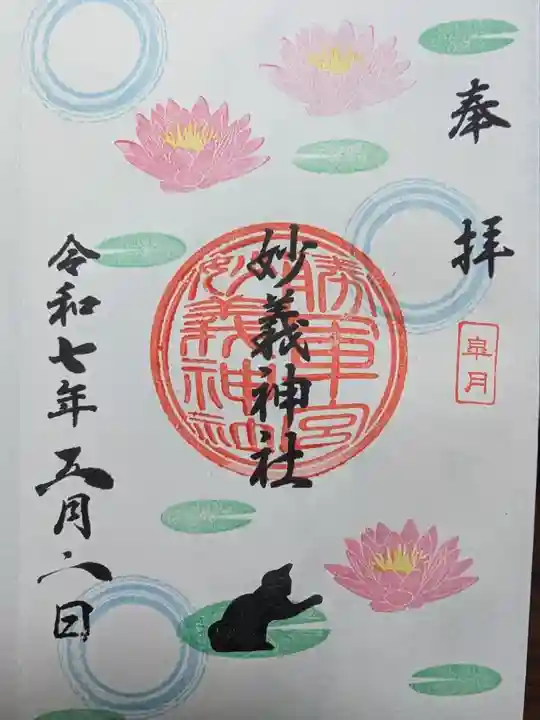 奉拝
皐月
妙義神社
勝軍宮
妙義神社
令和七年五月六日